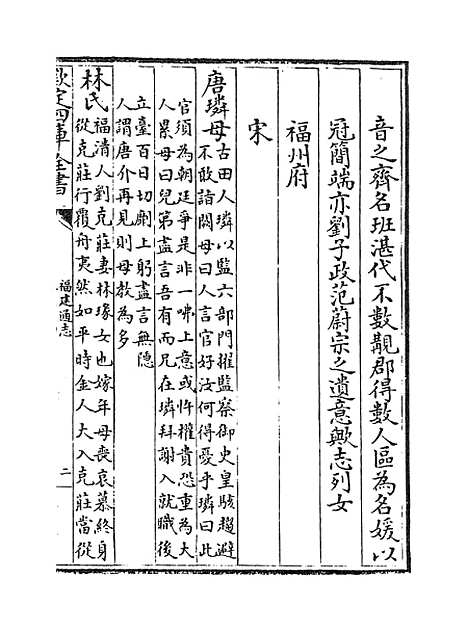 音之齊名班湛代不數覯郡得數人區為名媛以
冠簡端亦劉子政范蔚宗之遺意歟志列女
福州府
宋
唐璘母古田人璘以監六部門擢監察御史皇駭趨避
不敢詣闕母曰人言官好汝何得憂乎璘曰此
官須為朝廷爭是非一咈上意或忤權貴恐重為大
人累母曰兒第盡言吾有而兄在璘拜謝入就職後
立臺百日切劘上躬盡言無隱
人謂唐介再見則母教為多
林氏福清人劉克莊妻林瑑女也嫁年母喪哀慕終身
從克莊行覆舟夷然如平時金人大入克莊當從
欽定四庫全書
福建通志
二